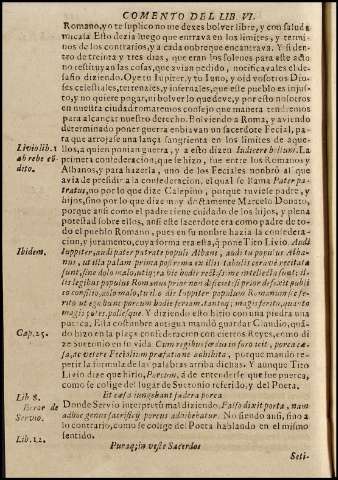 COMENTO DEL LIB. VI.
Romano, yo te suplico no me dexes bolver libre, y con salud a
mi casa Esto dezia luego que entrava en los limites, y termi-
nos de los contrarios, y a cada ombre que encontrava. Y si den-
tro de treinta y tres dias, que eran los solenes para este acto
no restituyan las cosas, que avian pedido, notificavales el de-
safio diziendo. Oye tu Iupiter, y tu Iuno, y oid vosotros Dio-
ses celestiales, terrenales, y infernales, que este pueblo es injus-
to, y no quiere pagar, ni bolver lo que deve, y por esto nosotros
en nuestra ciudad tomaremos consejo que manera tendremos
para alcançar nuestro derecho. Bolviendo a Roma, y aviendo
determinado poner guerra enbiavan un sacerdote Fecial, pa-
ra que arrojasse una lança sangrienta en los limites de aque-
Livio lib. 1
llos, a quien ponian guerra, y a esto dizen Indicere bellum. La
ab urbe cõ-
primera confederacion, que le hizo, fue entre los Romanos y
dito.
Albanos, y para hazerla, uno de los Feciales nonbrò al que
avia de presidir a la confederacion, el qual se llama Pater pa-
tratus, no por lo que dize Calepino, porque tuviese padre, y
hijos, sino por lo que dize muy doctamente Marcelo Donato,
porque asi como el padre tiene cuidado de los hijos, y plena
potestad sobre ellos, ansi este sacerdote era como padre de to-
do el pueblo Romano, pues en su nonbre hazia la confedera-
cion, y juramento, cuya forma era esta, q̃ pone Tito Livio. Audi
Ibidem.
Iuppiter, audi pater patrate populi Albani, audi tu populus Alba-
nus, ut illa palam prima postrema ex illis tabulis cerave recitata
sunt, sine dolo malo, utiq; ea hic hodie rectissime intellecta sunt: il-
lis legibus populus Romanus prior non deficiet: si prior defexit publi-
co consilio, dolo malo, tu illo die Iuppiter populum Romanum sic fe-
rito ut ego hunc porcum hodie feriam, tantoq; magis ferito, quanto
magis potes, pollesque. Y diziendo esto hirio con una piedra una
puerca, Esta costumbre antigua mandò guardar Claudio, quã-
Cap. 25.
do hizo en la plaça confederacion con ciertos Reyes, como di-
ze Suetonio en tu vida Cum regibus fœdus in foro icit, porca cæ-
sa, ac vetere Fecialium præfatione adhibita, porque mando re-
petir la formula de las palabras arriba dichas. Y aunque Tito
Livio dize que hirio, Porcum, à de entenderse que fue puerca,
como se colige del lugar de Suetonio referido, y del Poeta.
Lib 8.
Et cæsa iungebant fœdera porca
Error de
Donde Servio interpretò mal diziendo. Falso dixit porca, nam
Servio.
ad hoc genus sacrificij porcus adhibebatur. No siendo ansi, sino a
lo contrario, como se colige del Poeta hablando en el mismo
Lib. 12.
sentido.
Puraq; in veste Sacerdos
Seti-